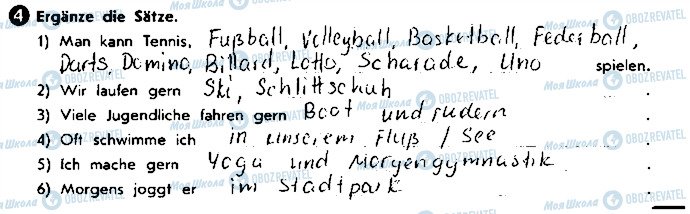 4 Ergänze die Sätze.
1) Man kann Tennis, Fußball, Volleyball, Basketball, Federball,
Darts, Domino, Billard, Lotto, Scharade, Uno spielen.
2) Wir laufen gern Ski, Schlittschuh .
3) Viele Jugendliche fahren gern Boot und rudern .
4) Oft schwimme ich in unserem Fluß / See .
5) Ich mache gern Yoga und Morgengymnastik .
6) Morgens joggt er im Stadtpark .